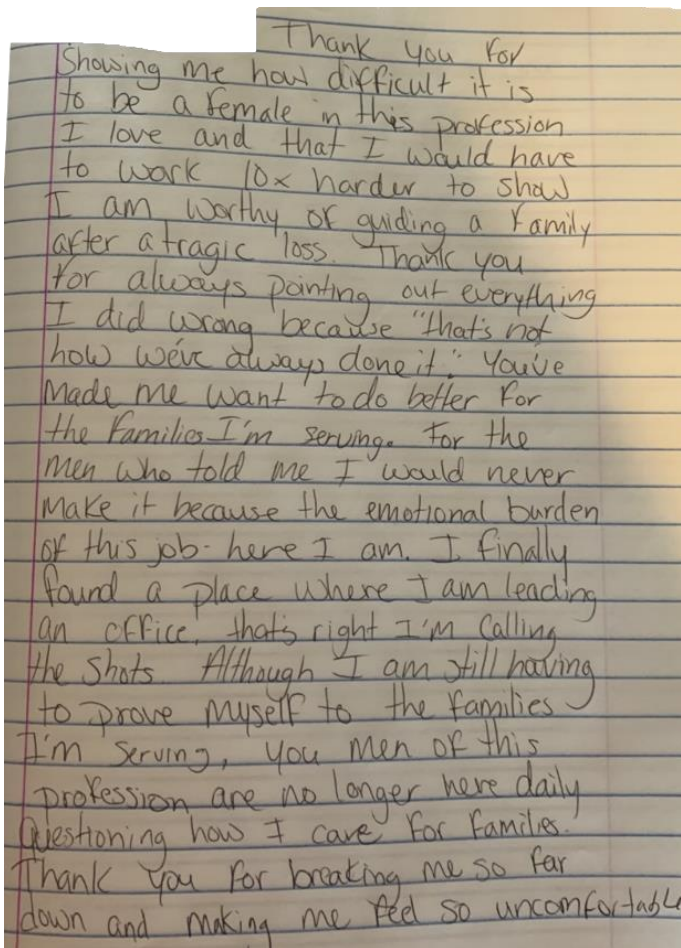 Thank you for
showing me how difficult it is
to be a female in this profession
I love and that I would have
to work 10x harder to show
I am worthy of guiding a family
after a tragic loss. Thank you
for always pointing out everything
I did wrong because "that's not
how we've always done it." You've
made me want to do better for
the families I'm serving. For the
men who told me I would never
make it because the emotional burden
of this job - here I am. I finally
found a place where I am leading
an office, that's right I'm calling
the shots. Although I am still having
to prove myself to the families
I'm serving, you men of this
profession are no longer here daily
questioning how I care for families.
Thank you for breaking me so far
down and making me feel so uncomfortable